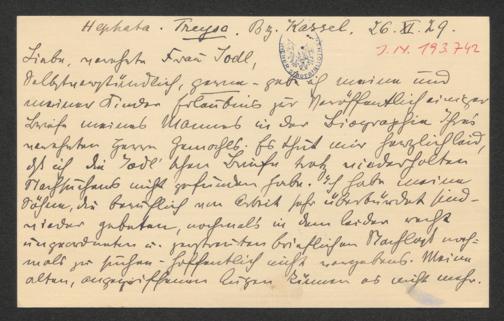 Hephata. Treysa. Bz. Kassel. 26. XI. 29.
J.N. 193.742
Liebe, verehrte Frau Jodl,
Selbstverständlich, gerne gebe ich meine und
meiner Kinder Erlaubnis zur Veröffentlich einiger
Briefe meines Mannes in der Biographie Ihres
verehrten Herrn Gemahls. Es thut mir herzlich leid,
daß ich die Jodl'schen Briefe trotz wiederholten
Nachsuchens nicht gefunden habe. Ich habe meine
Söhne, die beruflich von Arbeit sehr überbürdet sind
wieder gebeten, nochmals in dem leider recht
ungeordneten u. zerstreuten brieflichen Nachlaß noch-
mals zu suchen - hoffentlich nicht vergebens. Meine
alten, angegriffenen Augen können es nicht mehr.